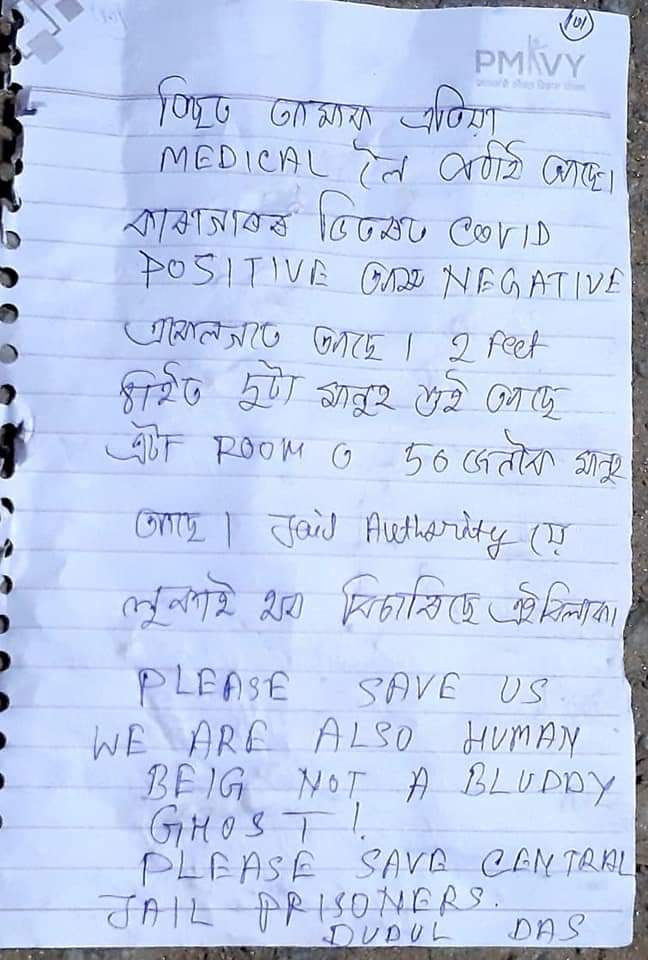 101
PMKVY
আমাৰ এতিয়া
MEDICAL লৈ পঠাই আছে।
কাৰাগাৰৰ ভিতৰত COVID
POSITIVE আৰু NEGATIVE
একেলগতে আছে। 2 feet
ঠাইত দুটা মানুহ শুই আছে
এটা ROOM ত 50 জনকৈ মানুহ
আছে। Jail Authority য়ে
লুকাই থব বিচাৰিছে এইবিলাক।
PLEASE SAVE US
WE ARE ALSO HUMAN
BEIG NOT A BLUDDY
GHOST!
PLEASE SAVE CENTRAL
JAIL PRISONERS.
DUDUL DAS